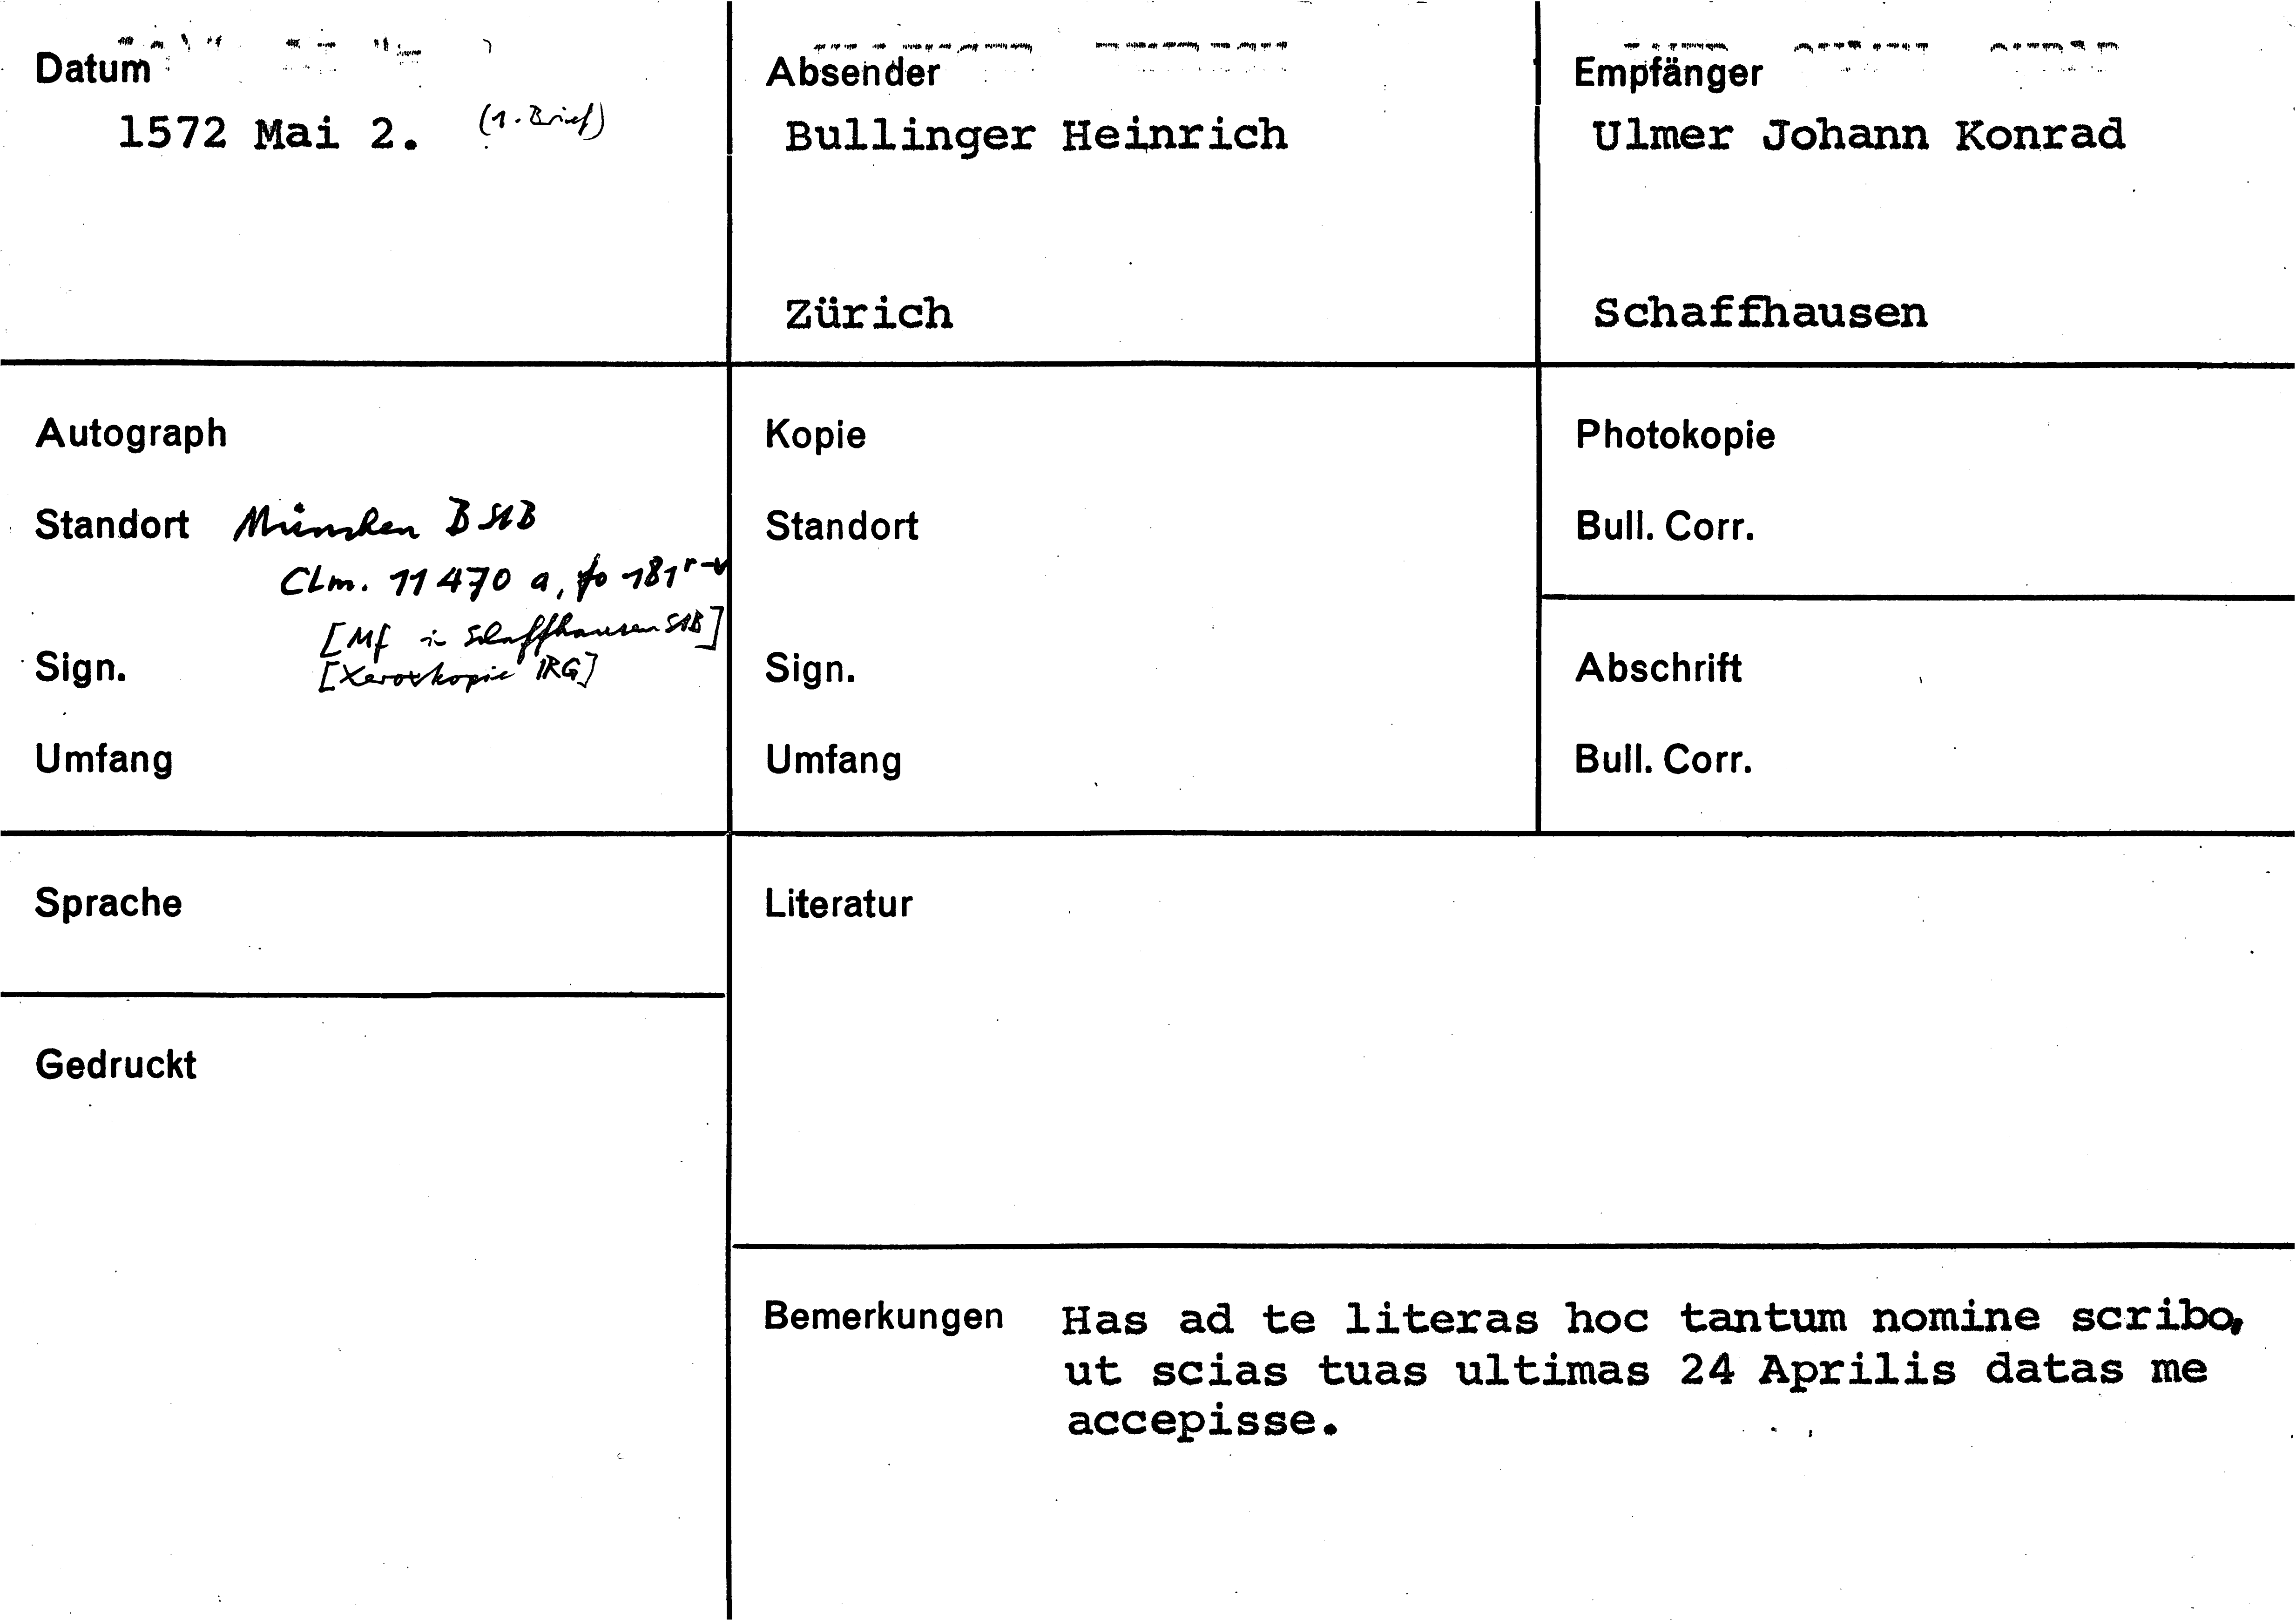 Datum
1572 Mai 2. (1. Brief)
Absender
Bullinger Heinrich
Zürich
Empfänger
Ulmer Johann Konrad
Schaffhausen
Autograph
Standort München BStB
CLm. 11 470 a, fo 181 r-v
[Mf in Schaffhausen StB]
Sign. [Xerokopie IRG]
Umfang
Kopie
Standort
Sign.
Umfang
Photokopie
Bull. Corr.
Abschrift
Bull. Corr.
Sprache
Gedruckt
Literatur
Bemerkungen Has ad te literas hoc tantum nomine scribo,
ut scias tuas ultimas 24 Aprilis datas me
accepisse.